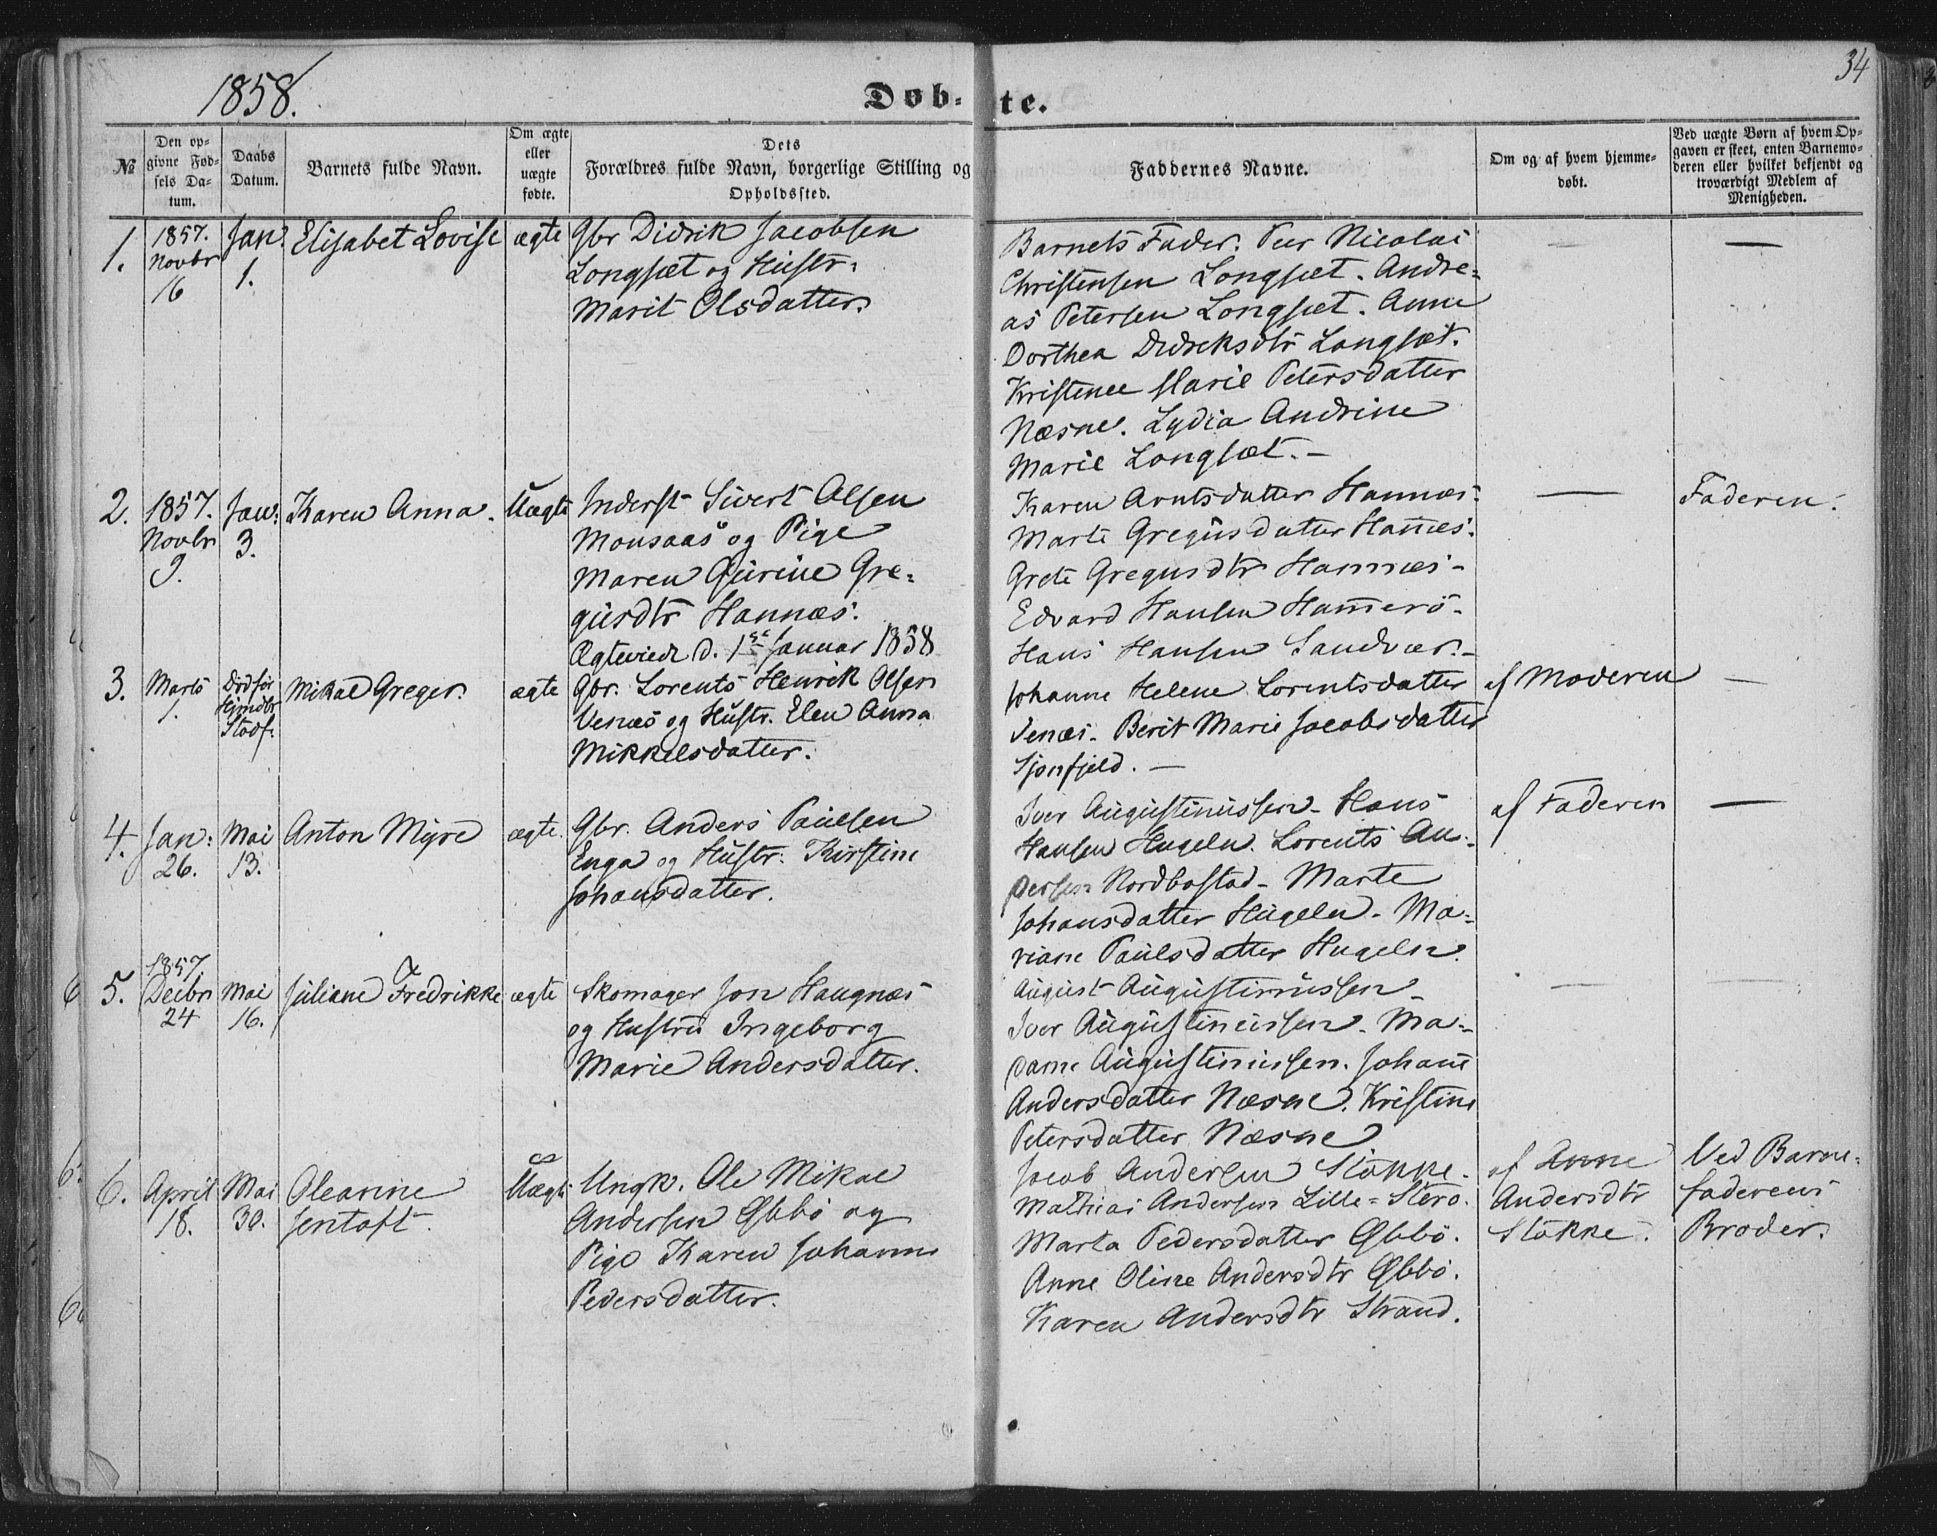 1858.
34
Døb-
te.
№
Den op-
givne Fød-
sels Da-
tum.
Daabs
Datum.
Barnets fulde Navn.
Om ægte
eller
uægte
fødte.
Dets
Forældres fulde Navn, borgerlige Stilling og
Opholdssted.
Faddernes Navne.
Om og af hvem hjemme-
døbt.
Ved uægte Børn af hvem Op-
gaven er skeet, enten Barnemo-
deren eller hvilket bekjendt og
troværdigt Medlem af
Menigheden.
1.
1857.
Novbr
16
Jan.
1.
Elisabet Lovise
ægte
Gbr Didrik Jacobsen
Longsæt og Hustr.
Marit Olsdatter.
Barnets Fader. Peer Nicolai
Christensen Longsæt. Andre-
as Petersen Longsæt. Anne
Dorthea Didreksdtr Longsæt.
Kristence Marie Petersdatter
Næsne. Lydia Andrine
Marie Longsæt. —
—
—
2.
1857.
Novbr
9.
Jan:
3.
Karen Anna.
Uægte
Inderst Sivert Olsen
Monsaas og Pige
Maren Gurine Gre-
gusdtr Hannæs.
Ægteviedt d. 1ste Januar 1858
Karen Arntsdatter Hannæs.
Marte Gregusdatter Hannæs.
Grete Gregusdtr Hannæs -
Edvard Hansen Hamerö -
Hans Hansen Sandvær. -
—
Faderen.
3.
Marts
1.
Död för
Hjmdbr
Stadf.
Mikal Greger.
ægte
Gbr. Lorents Henrik Olsen
Venæs og Hustr. Elen Anna
Mikkelsdatter.
Johanne Helene Lorentsdatter
Venæs - Berit Marie Jacobsdatter
Sjonfjeld. —
af Moderen
—
4.
Jan:
26.
Mai
13.
Anton Myre
ægte.
Gbr. Anders Paulsen
Enga og Hustr: Kirstine
Johansdatter.
Iver Augustinussen - Hans
Hansen Hugeln. Lorents An-
dersen Nordbostad - Marte
Johansdatter Hugeln - Ma-
riane Paulsdatter Hugeln.
af Faderen
—
5.
1857.
Decbr
24
Mai
16.
Juliane Fredrikke
ægte
Skomager Jon Haugnæs
og Hustru Ingeborg
Marie Andersdatter.
August Augustinussen -
Iver Augustinussen - Ma-
dame Augustinussen. Johane
Andersdatter Næsne. Kristine
Petersdatter Næsne
—
—
6.
April
18.
Mai
30.
Oleanne
Jentoft.
Uægte
Ungk. Ole Mikal
Andersen Øbbö og
Pige Karen Johanne
Pedersdatter.
Jacob Andersen Stokke.
Mathias Andersen Lille-Sterö.
Marta Pedersdatter Øbbö.
Anne Oline Andersdtr Øbbö.
Karen Andersdtr Strand.
af Anne
Andersdtr
Stokke.
Ved Barne-
faderens
Broder.